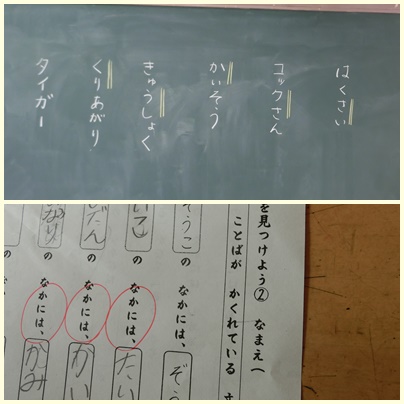 はくさい
コックさん
かいそう
きゅうしょく
くりあがり
タイガー
を見つけよう② なまえ(
ことばが かくれている
そうこ の なかには、 ぞう
の なかには、 たい
だん の なかには、 かい
なり の なかには、 かみ